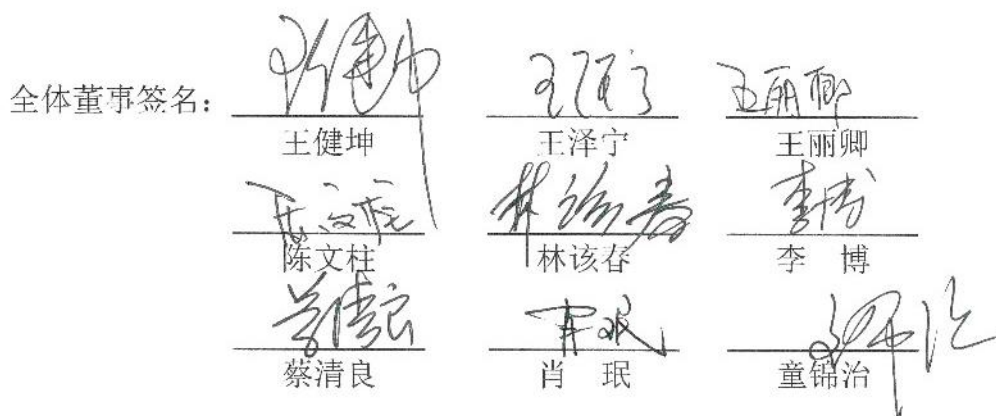 全体董事签名：
王健坤 王泽宁 王丽卿
陈文柱 林该春 李 博
蔡清良 肖 珉 童锦治